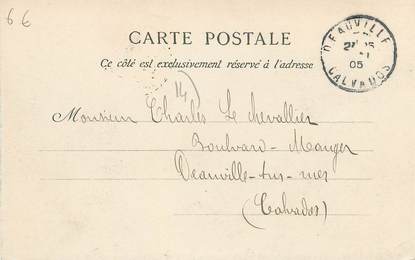 6 6
CARTE POSTALE
Ce côté est exclusivement réservé à l'adresse
DEAUVILLE
05
CALVADOS
14
Monsieur Charles Le Chevallier
Boulevard-Mauger
Deauville-sur-mer
(Calvados)